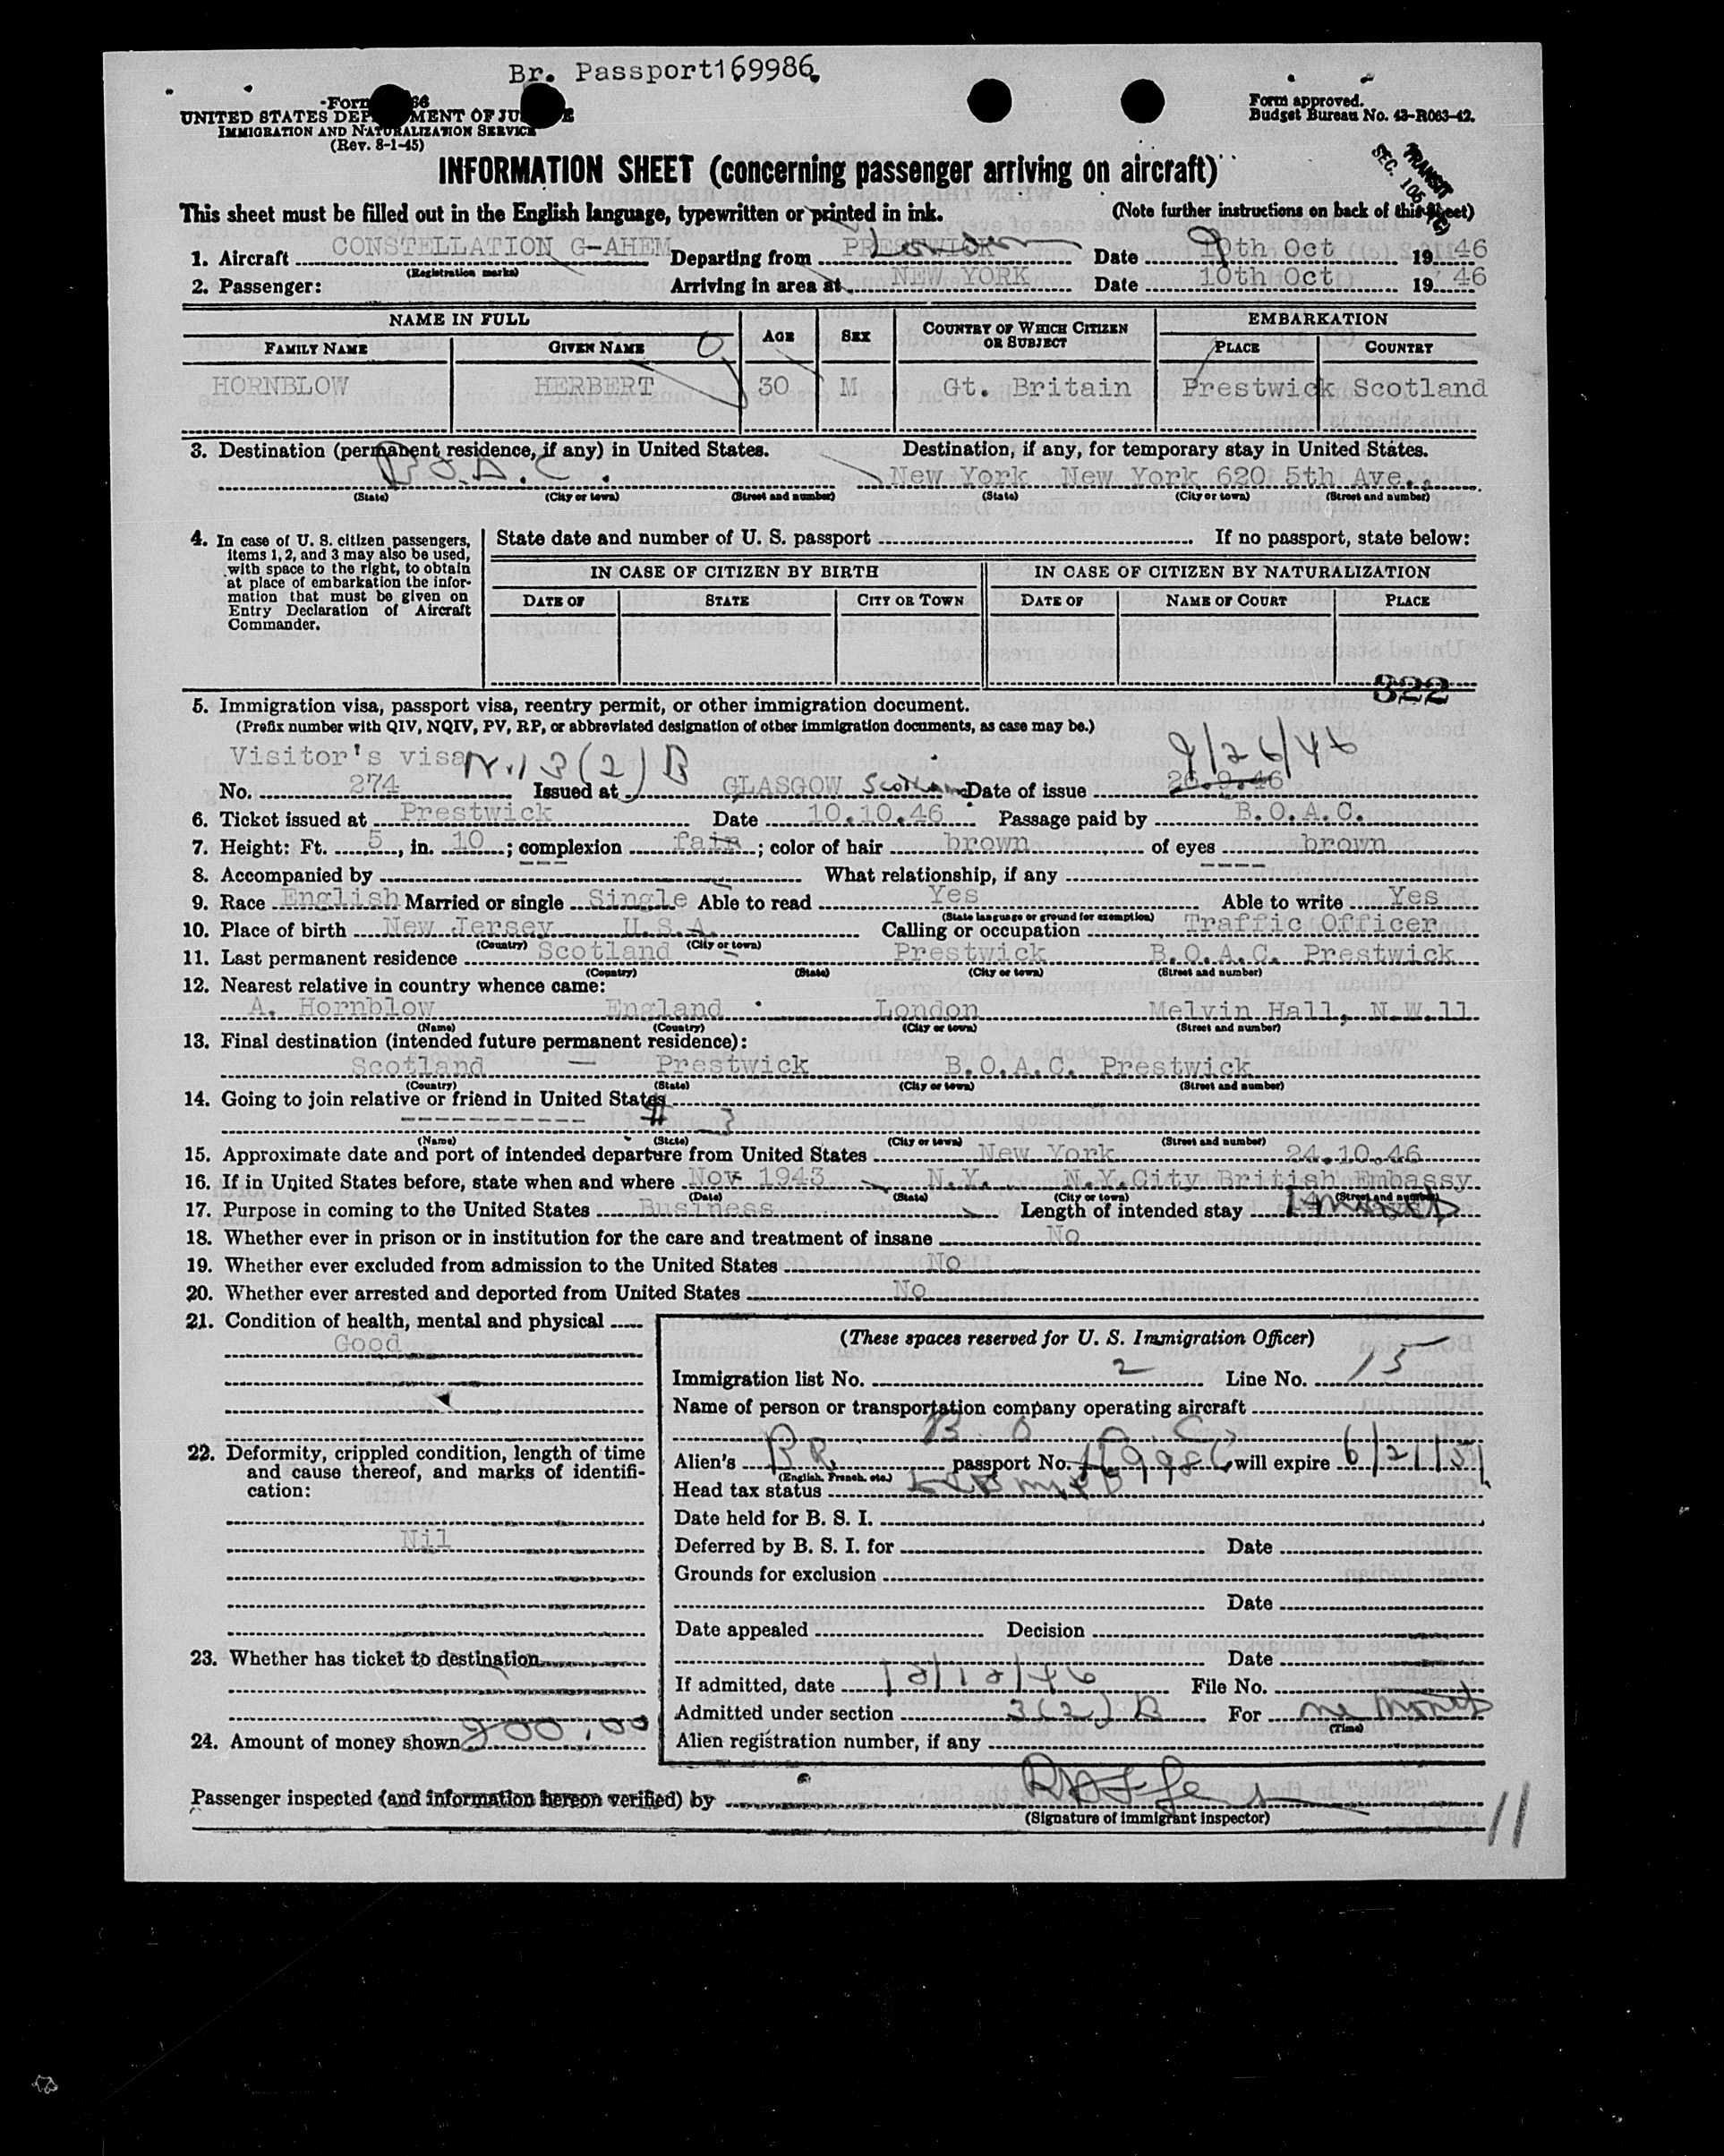 Br. Passport169986.
Form 66
Form approved.
UNITED STATES DEP MENT OF JU E
Budget Bureau No. 43-R063-42.
IMMIGRATION AND NATURALIZATION SERVICE
(Rev. 8-1-45)
TRANSIT
SEC. 105
INFORMATION SHEET (concerning passenger arriving on aircraft)
This sheet must be filled out in the English language, typewritten or printed in ink. (Note further instructions on back of this sheet)
1. Aircraft CONSTELLATION G-AHEM Departing from PRESTWICK London Date 9 10th Oct 1946
(Registration marks)
2. Passenger: Arriving in area at NEW YORK Date 10th Oct 1946
NAME IN FULL AGE SEX COUNTRY OF WHICH CITIZEN OR SUBJECT EMBARKATION
FAMILY NAME GIVEN NAME PLACE COUNTRY
HORNBLOW HERBERT O. 30 M Gt. Britain Prestwick Scotland
3. Destination (permanent residence, if any) in United States. Destination, if any, for temporary stay in United States.
B.O.A.C. New York New York 620 5th Ave.,
(State) (City or town) (Street and number) (State) (City or town) (Street and number)
4. In case of U. S. citizen passengers, items 1, 2, and 3 may also be used, with space to the right, to obtain at place of embarkation the information that must be given on Entry Declaration of Aircraft Commander.
State date and number of U. S. passport If no passport, state below:
IN CASE OF CITIZEN BY BIRTH IN CASE OF CITIZEN BY NATURALIZATION
DATE OF STATE CITY OR TOWN DATE OF NAME OF COURT PLACE
322
5. Immigration visa, passport visa, reentry permit, or other immigration document.
(Prefix number with QIV, NQIV, PV, RP, or abbreviated designation of other immigration documents, as case may be.)
Visitor's visa 3(2)B 9/26/46
No. 274 Issued at GLASGOW Scotland Date of issue 26.9.46
6. Ticket issued at Prestwick Date 10.10.46 Passage paid by B.O.A.C.
7. Height: Ft. 5, in. 10; complexion fair; color of hair brown of eyes brown
8. Accompanied by ---- What relationship, if any ----
9. Race English Married or single Single Able to read Yes Able to write Yes
(State language or ground for exemption)
10. Place of birth New Jersey U.S.A. Calling or occupation Traffic Officer
(Country) (City or town)
11. Last permanent residence Scotland - Prestwick B.O.A.C. Prestwick
(Country) (State) (City or town) (Street and number)
12. Nearest relative in country whence came:
A. Hornblow England London Melvin Hall, N.W.11
(Name) (Country) (City or town) (Street and number)
13. Final destination (intended future permanent residence):
Scotland — Prestwick B.O.A.C. Prestwick
(Country) (State) (City or town) (Street and number)
14. Going to join relative or friend in United States
------------
(Name) (State) (City or town) (Street and number)
15. Approximate date and port of intended departure from United States New York 24.10.46
16. If in United States before, state when and where Nov 1943 N.Y. N.Y.City British Embassy
(Date) (State) (City or town) (Street and number)
17. Purpose in coming to the United States Business Length of intended stay
18. Whether ever in prison or in institution for the care and treatment of insane No
19. Whether ever excluded from admission to the United States No
20. Whether ever arrested and deported from United States No
21. Condition of health, mental and physical
Good
22. Deformity, crippled condition, length of time and cause thereof, and marks of identification:
Nil
23. Whether has ticket to destination
24. Amount of money shown 200.00
(These spaces reserved for U. S. Immigration Officer)
Immigration list No. 2 Line No. 15
Name of person or transportation company operating aircraft
B.O.A.C.
Alien's BR. passport No. 169986 will expire 6/21/51
(English, French, etc.)
Head tax status
Date held for B. S. I.
Deferred by B. S. I. for Date
Grounds for exclusion
Date
Date appealed Decision
Date
If admitted, date 10/10/46 File No.
Admitted under section 3(2)B For one month
(Time)
Alien registration number, if any
Passenger inspected (and information hereon verified) by
(Signature of immigrant inspector)
11